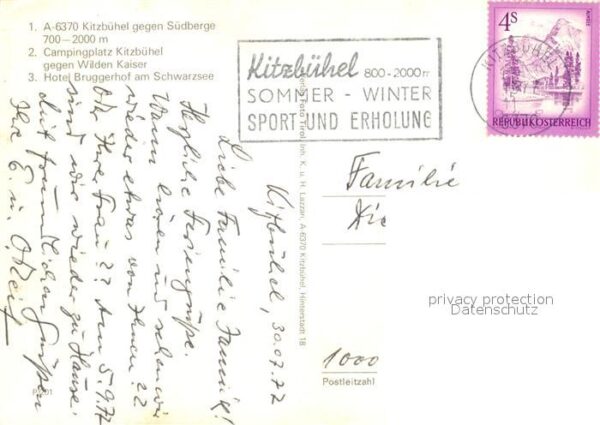 1. A-6370 Kitzbühel gegen Südberge
700–2000 m
2. Campingplatz Kitzbühel
gegen Wilden Kaiser
3. Hotel Bruggerhof am Schwarzsee
Kitzbühel 800-2000m
SOMMER - WINTER
SPORT UND ERHOLUNG
4S
REPUBLIK ÖSTERREICH
KITZBÜHEL
Kitzbühel, 30.07.77
Liebe Familie
Herzliche Feriengrüsse.
Wann hören und sehen wir
wieder etwas von Ihnen ??
Oder Ihre Frau ?? Am 5.9.77
sind wir wieder zu Hause.
Mit freundlichen Grüßen
Ihre E. u. O.
Foto Tirol Inh. K. u. H. Lazzari, A-6370 Kitzbühel, Hinterstadt 18
Familie
1000
Postleitzahl
privacy protection
Datenschutz